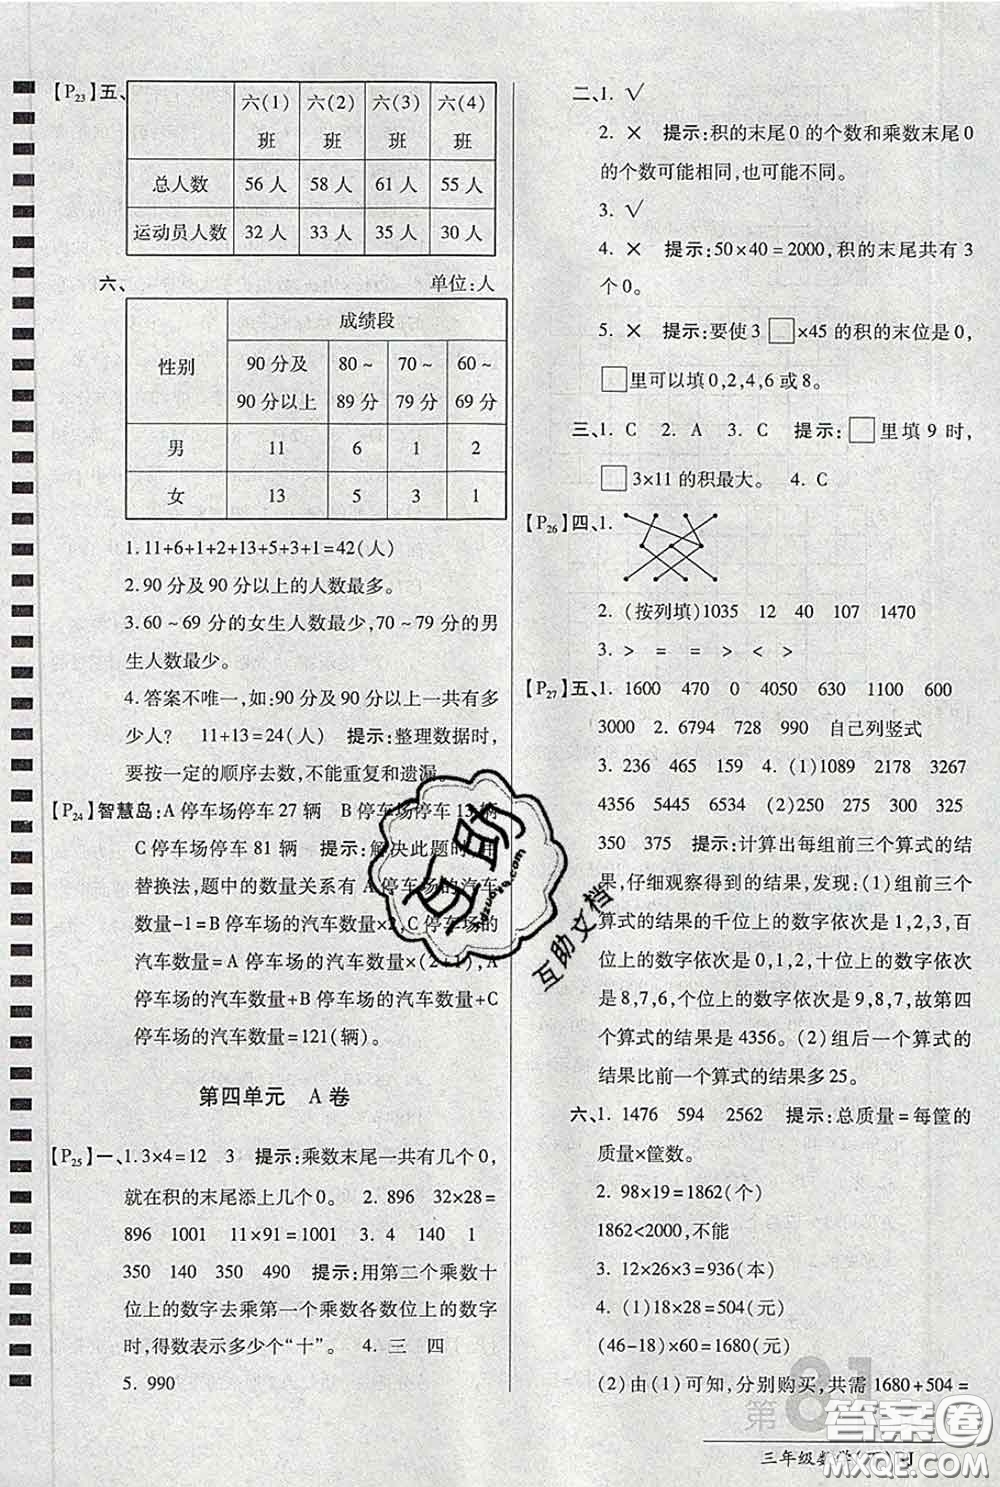 【P23】五、
六(1)班 六(2)班 六(3)班 六(4)班
总人数 56 人 58 人 61 人 55 人
运动员人数 32 人 33 人 35 人 30 人
六、 单位:人
性别 成绩段
90 分及90 分以上 80～89 分 70～79 分 60～69 分
男 11 6 1 2
女 13 5 3 1
1.11+6+1+2+13+5+3+1=42(人)
2.90 分及 90 分以上的人数最多。
3.60～69 分的女生人数最少,70～79 分的男
生人数最少。
4.答案不唯一,如:90 分及 90 分以上一共有多
少人? 11+13=24(人) 提示:整理数据时,
要按一定的顺序去数,不能重复和遗漏。
【P24】智慧岛:A 停车场停车 27 辆 B 停车场停车 13 辆
C 停车场停车 81 辆 提示:解决此题时,用
替换法,题中的数量关系有 A 停车场的汽车
数量-1=B 停车场的汽车数量×2,C 停车场的
汽车数量=A 停车场的汽车数量×(2+1),A
停车场的汽车数量+B 停车场的汽车数量+C
停车场的汽车数量=121(辆)。
第四单元 A 卷
【P25】一、1.3×4=12 3 提示:乘数末尾一共有几个 0,
就在积的末尾添上几个 0。 2. 896 32×28=
896 1001 11×91=1001 3. 4 140 1
350 140 350 490 提示:用第二个乘数十
位上的数字去乘第一个乘数各数位上的数字
时,得数表示多少个“十”。 4. 三 四
5. 990
二、1. √
2. × 提示:积的末尾 0 的个数和乘数末尾 0
的个数可能相同,也可能不同。
3. √
4. × 提示:50×40=2000,积的末尾共有 3
个 0。
5. × 提示:要使 3□×45 的积的末位是 0,
□里可以填 0,2,4,6 或 8。
三、1. C 2. A 3. C 提示:□里填 9 时,
□3×11 的积最大。 4. C
【P26】四、1.
2. (按列填)1035 12 40 107 1470
3. > = = > < >
【P27】五、1. 1600 470 0 4050 630 1100 600
3000 2. 6794 728 990 自己列竖式
3. 236 465 159 4. (1)1089 2178 3267
4356 5445 6534 (2)225 250 275 300 325
350 375 提示:计算出每组前三个算式的结
果,仔细观察得到的结果,发现:(1)组前三个
算式的结果的千位上的数字依次是 1,2,3,百
位上的数字依次是 0,1,2,十位上的数字依次
是 8,7,6,个位上的数字依次是 9,8,7,故第四
个算式的结果是 4356。(2)组后一个算式的
结果比前一个算式的结果多 25。
六、1. 1476 594 2562 提示:总质量=每筐的
质量×筐数。
2. 98×19=1862(个)
1862<2000,不能
3. 12×26×3=936(本)
4. (1)18×28=504(元)
(46-18)×60=1680(元)
(2)由(1)可知,分别购买,共需 1680+504=
第 81
三年级数学(下) RJ
互助
互助文档
答案圈
MXQE.COM